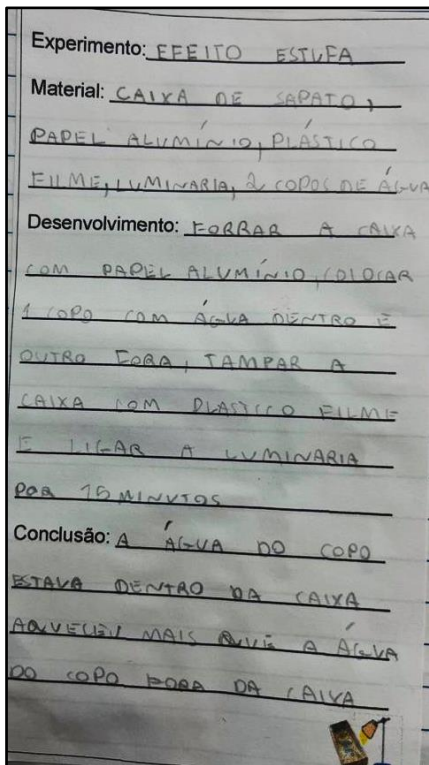 Experimento: EFEITO ESTUFA
Material: CAIXA DE SAPATO,
PAPEL ALUMÍNIO, PLÁSTICO
FILME, LUMINARIA, 2 COPOS DE ÁGUA
Desenvolvimento: FORRAR A CAIXA
COM PAPEL ALUMÍNIO, COLOCAR
1 COPO COM ÁGUA DENTRO E
OUTRO FORA, TAMPAR A
CAIXA COM PLASTICO FILME
E LIGAR A LUMINARIA
POR 15 MINUTOS
Conclusão: A ÁGUA DO COPO
ESTAVA DENTRO DA CAIXA
AQUECEU MAIS QUE A ÁGUA
DO COPO FORA DA CAIXA